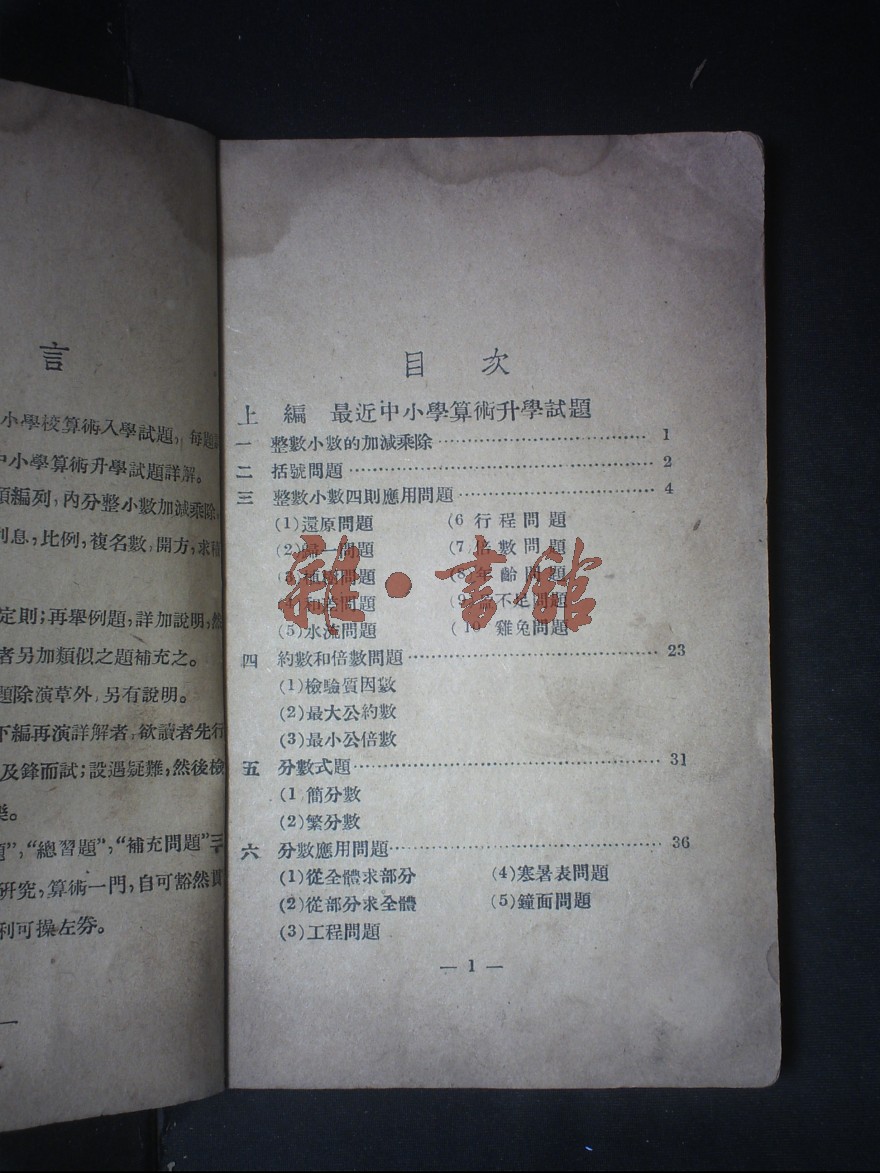 言
小學校算術入學試題，每題
中小學算術升學試題詳解。
編列，內分整小數加減乘除，
利息，比例，複名數，開方，求積
定則；再舉例題，詳加說明，然
者另加類似之題補充之。
題除演草外，另有說明。
下編再演詳解者，欲讀者先行
及鋒而試；設遇疑難，然後檢
樂。
題”，“總習題”，“補充問題”三
研究，算術一門，自可豁然貫
利可操左券。
目次
上編 最近中小學算術升學試題
一 整數小數的加減乘除 1
二 括號問題 2
三 整數小數四則應用問題 4
(1)還原問題 (6 行程問題
(2)歸一問題 (7 倍數問題
(3)植樹問題 (8)年齡問題
(4)和差問題 (9)盈不足問題
(5)水流問題 (10 雞兔問題
四 約數和倍數問題 23
(1)檢驗質因數
(2)最大公約數
(3)最小公倍數
五 分數式題 31
(1 簡分數
(2)繁分數
六 分數應用問題 36
(1)從全體求部分 (4)寒暑表問題
(2)從部分求全體 (5)鐘面問題
(3)工程問題
— 1 —
雜·書館